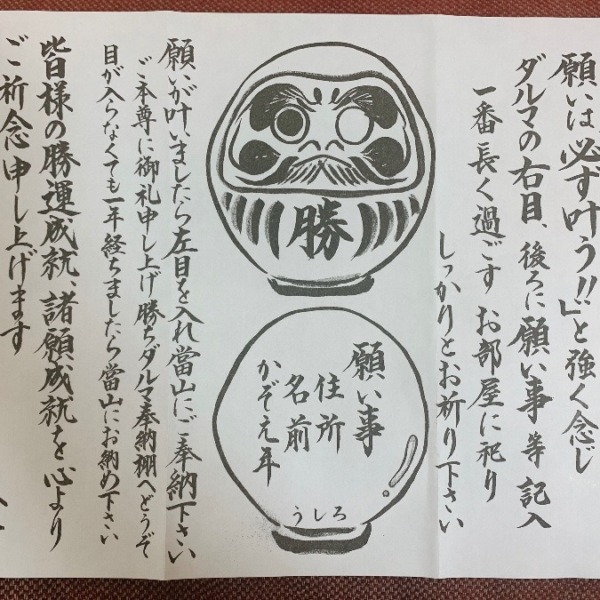 願いは必ず叶う!!」と強く念じ
ダルマの右目、後ろに願い事等記入
一番長く過ごすお部屋に祀り
しっかりとお祈り下さい
勝
願い事
住所
名前
かぞえ年
うしろ
願いが叶いましたら左目を入れ當山にご奉納下さい
ご本尊に御礼申し上げ勝ちダルマ奉納棚へどうぞ
目が入らなくても一年経ちましたら當山にお納め下さい
皆様の勝運成就、諸願成就を心より
ご祈念申し上げます